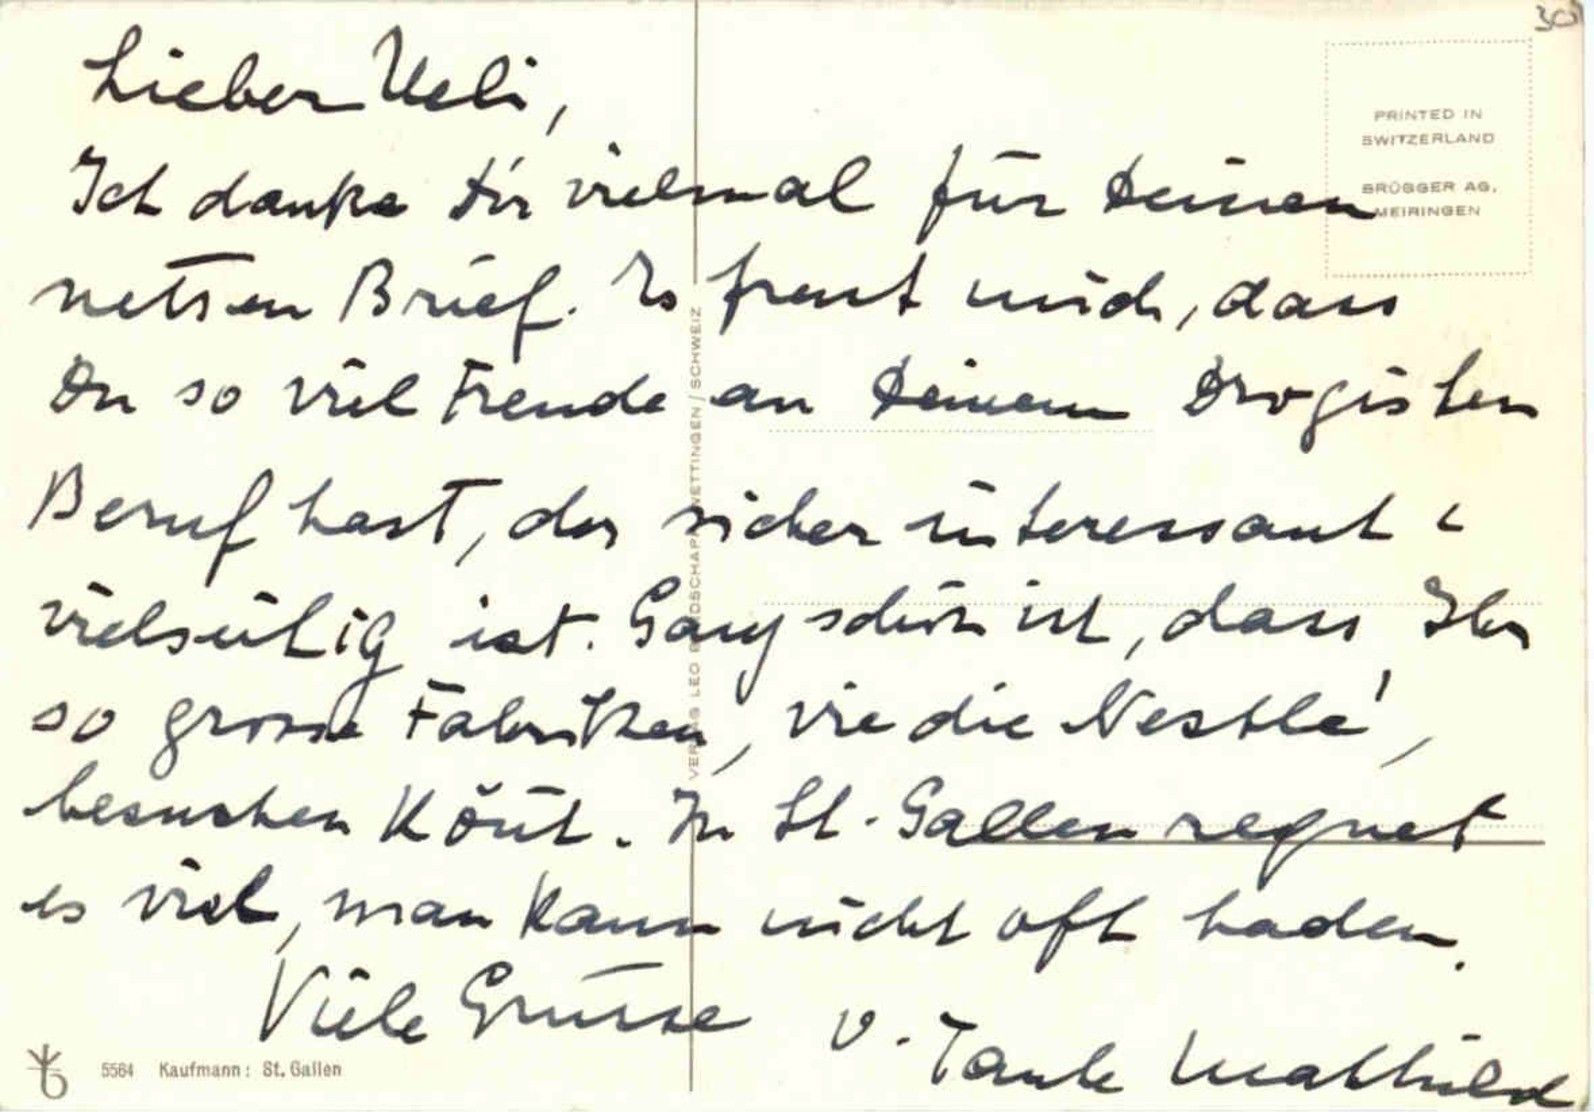 30
Lieber Ueli,
PRINTED IN
SWITZERLAND
BRÜGGER AG,
MEIRINGEN
Ich danke Dir vielmal für Deinen
netten Brief. Es freut mich, dass
Du so viel Freude an Deinem Drogisten
Beruf hast, der sicher interessant &
vielseitig ist. Ganz schön ist, dass Ihr
so grosse Fabriken, wie die Nestlé,
besuchen könnt. In St. Gallen regnet
es viel, man kann nicht oft baden.
Viele Grüsse v. Tante Mathild
VERLAG LEO WETTINGEN / SCHWEIZ
5564 Kaufmann: St. Gallen